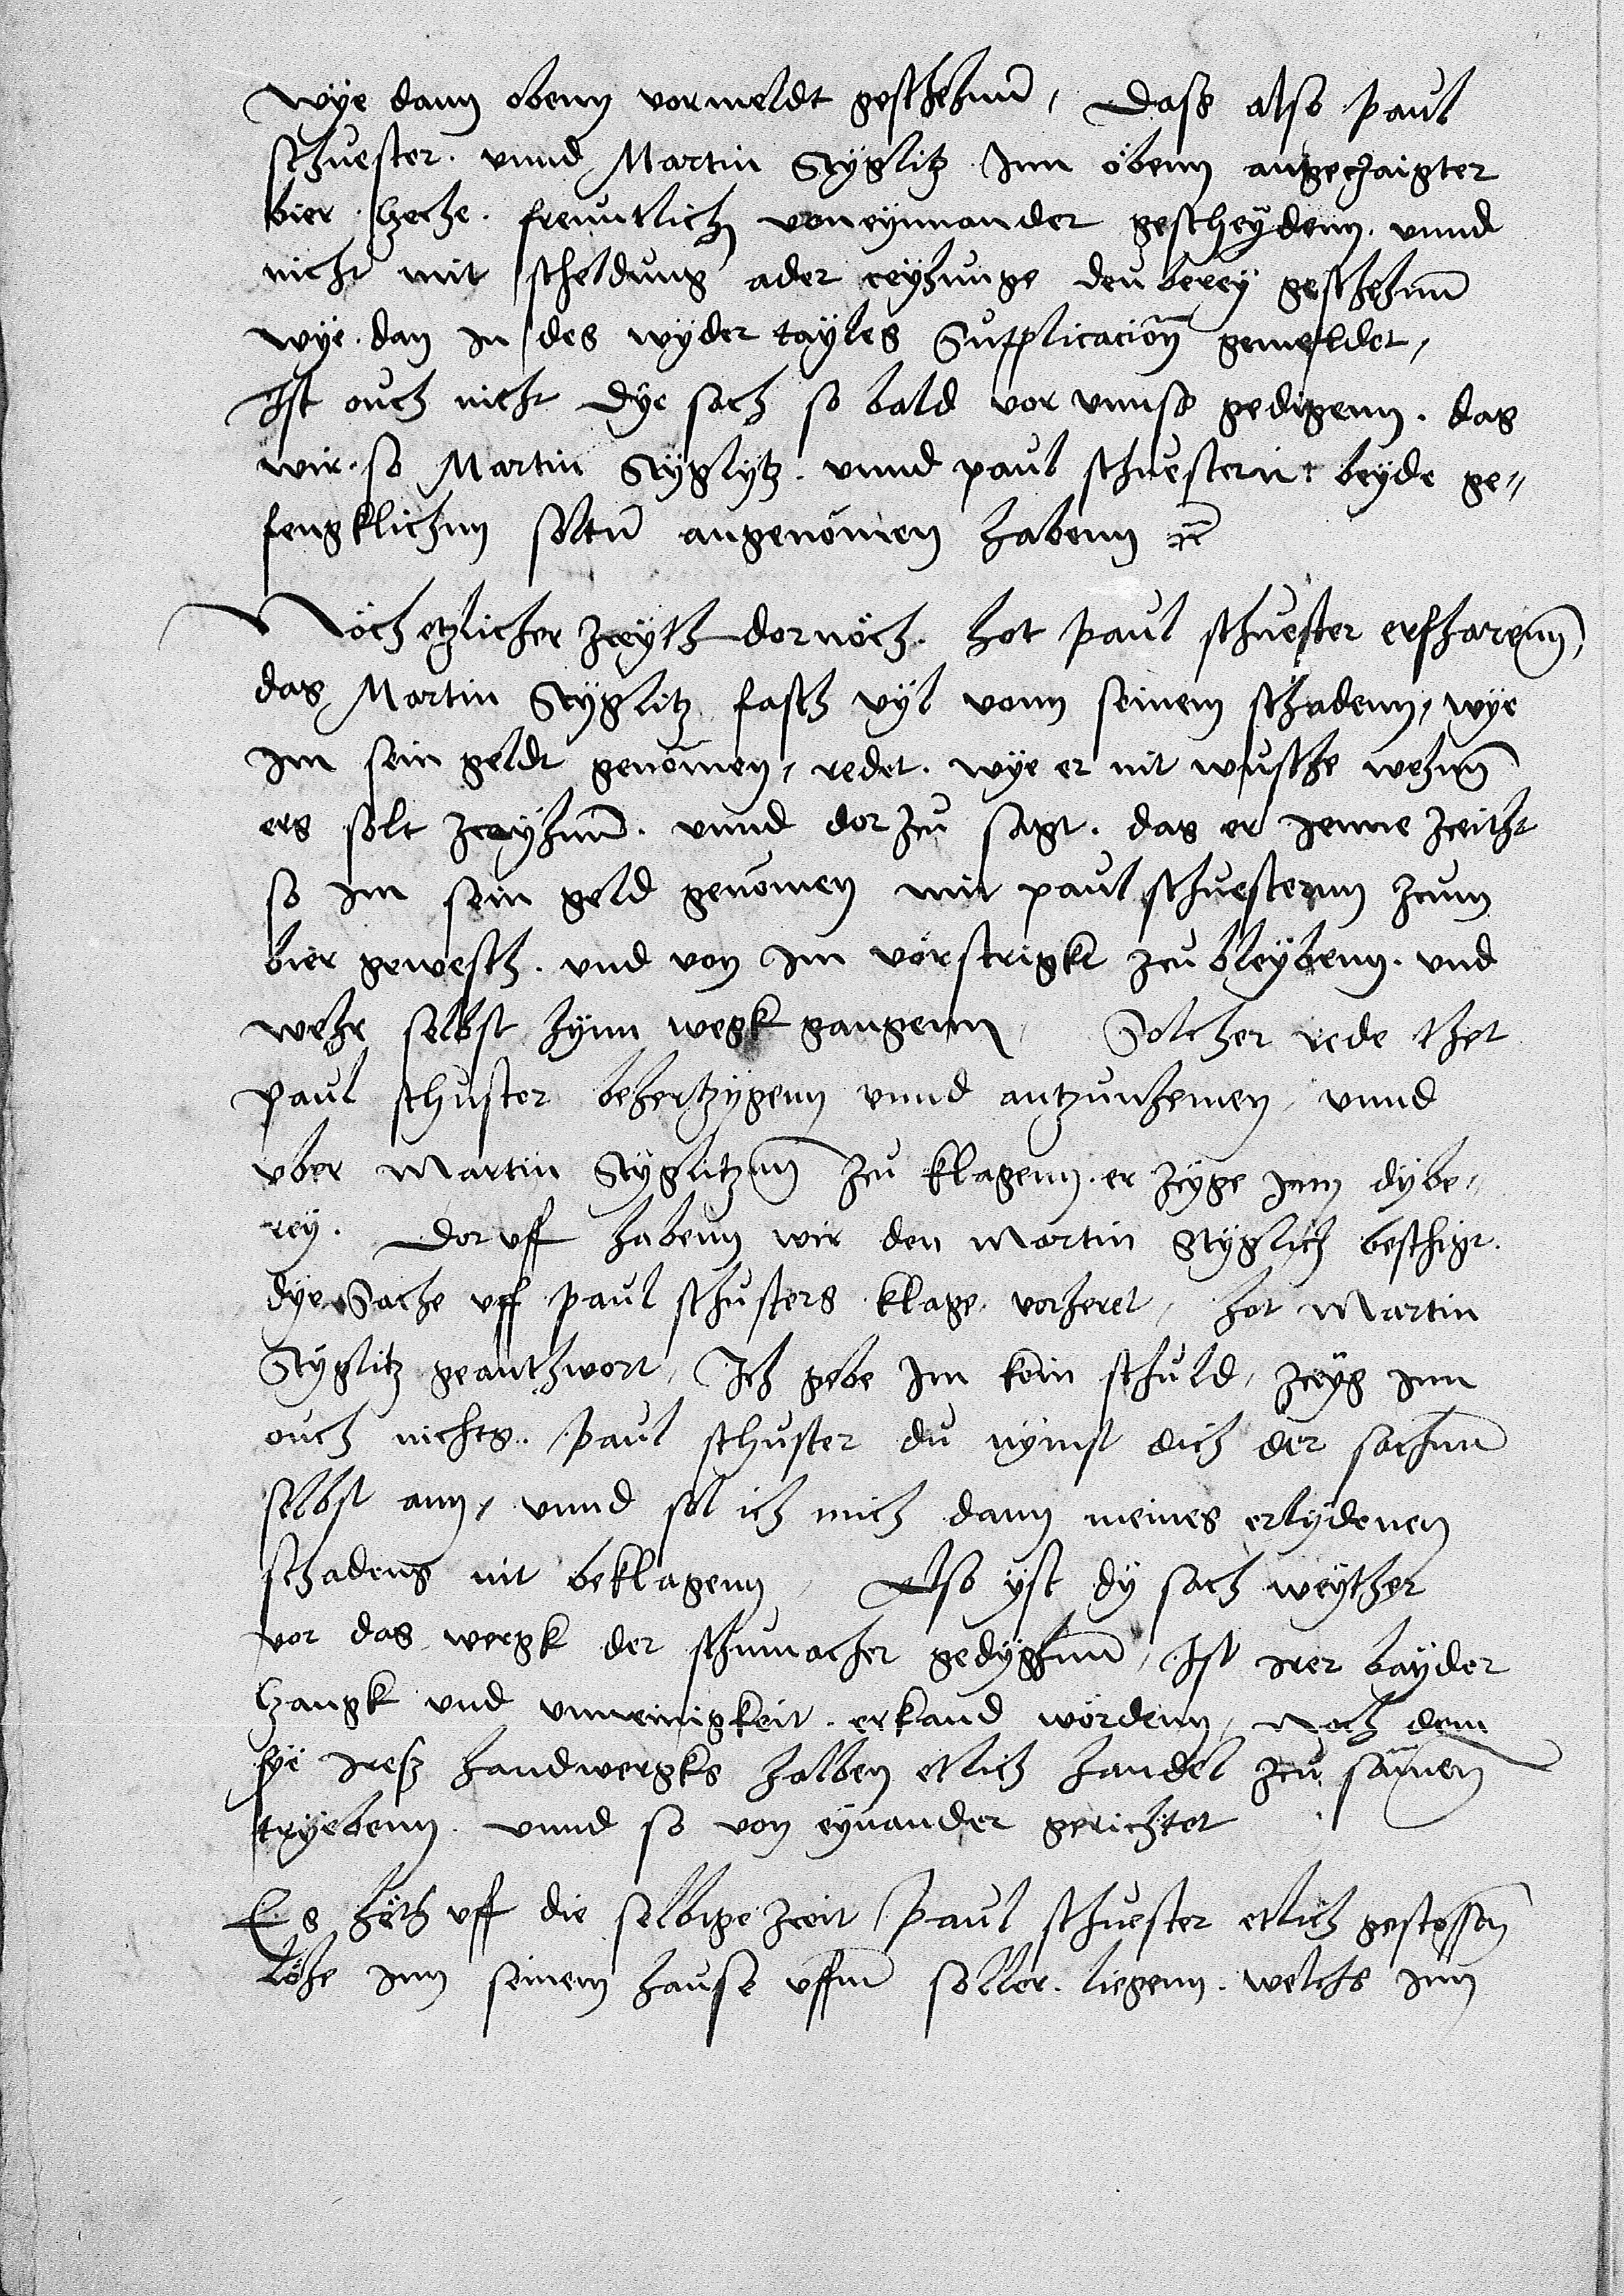 wÿe dann obenn vormeldt geschehnn̄, Dass also paul
schuester. vnnd Martin Styglitz Inn öbenn angeczaigter
bier Czeche. freuntlich voneynnander gescheÿdenn. vnnd
nicht mit scheldung ader czyhunge deuberey geschehnn̄
wÿe. dan in des wÿder taÿles Supplicacion̄ gemeldet,
Ist ouch nicht dÿe sach so bald vor vnnss gedigenn. das
wir. so Martin Stÿglytz. vnnd paul schuestern: beyde ge„
fengklichnn soltn̄ angenōmen habenn rc̄
Nöch etzlicher zceÿth dornöch. hot paul schuester erfharenn,
das Martin Stÿglitz fasth vÿl vonn seinem schadenn, wÿe
im sein geldt genōmen, redet. wÿe er nit wusthe wehnn
ers solt zceÿhnn̄. vnnd dor zcu sagt. das er jenne zceitht
so im sein geld genōmen mit paul schuesternn zcum
bier gewesth. vnd von im vorstrigkt zcu bleÿbenn. vnd
wehr selbst hÿnn wegk gangenn, Solcher rede thet
paul schuster behertzÿgenn vnnd antzunhemen, vnnd
vber Martin Stÿglitznn zcu klagenn. er zcyge inn dÿbe„
reÿ. Dor vff habenn wir den Martin Stÿglich beschigt.
dÿe Sache vff paul schusters klage, vorheret, hot Martin
Stÿglitz geanthwort, Ich gebe im kein schuld, zceÿg inn
ouch nichts. paul schuster du nÿmst dich der sachnn̄
selbst ann, vnnd sol ich mich dann meines erlÿdenen
schadens nit beklagenn, Also ÿst dÿ sach weÿther
vor das wergk der schumacher gedÿghnn̄, Ist irer baÿder
Czangk vnd vnneinigkeit. erkand wördenn, noch dem
sÿe iress handwergks halben etlich handel zcu sāmen
trÿebenn. vnnd so von eÿnander gerichtet
Es hëth vff die selbige zceit Paul schuester etlich gestossen
löhe inn seinem hause vffm̄ soller. liegenn. welchs inn